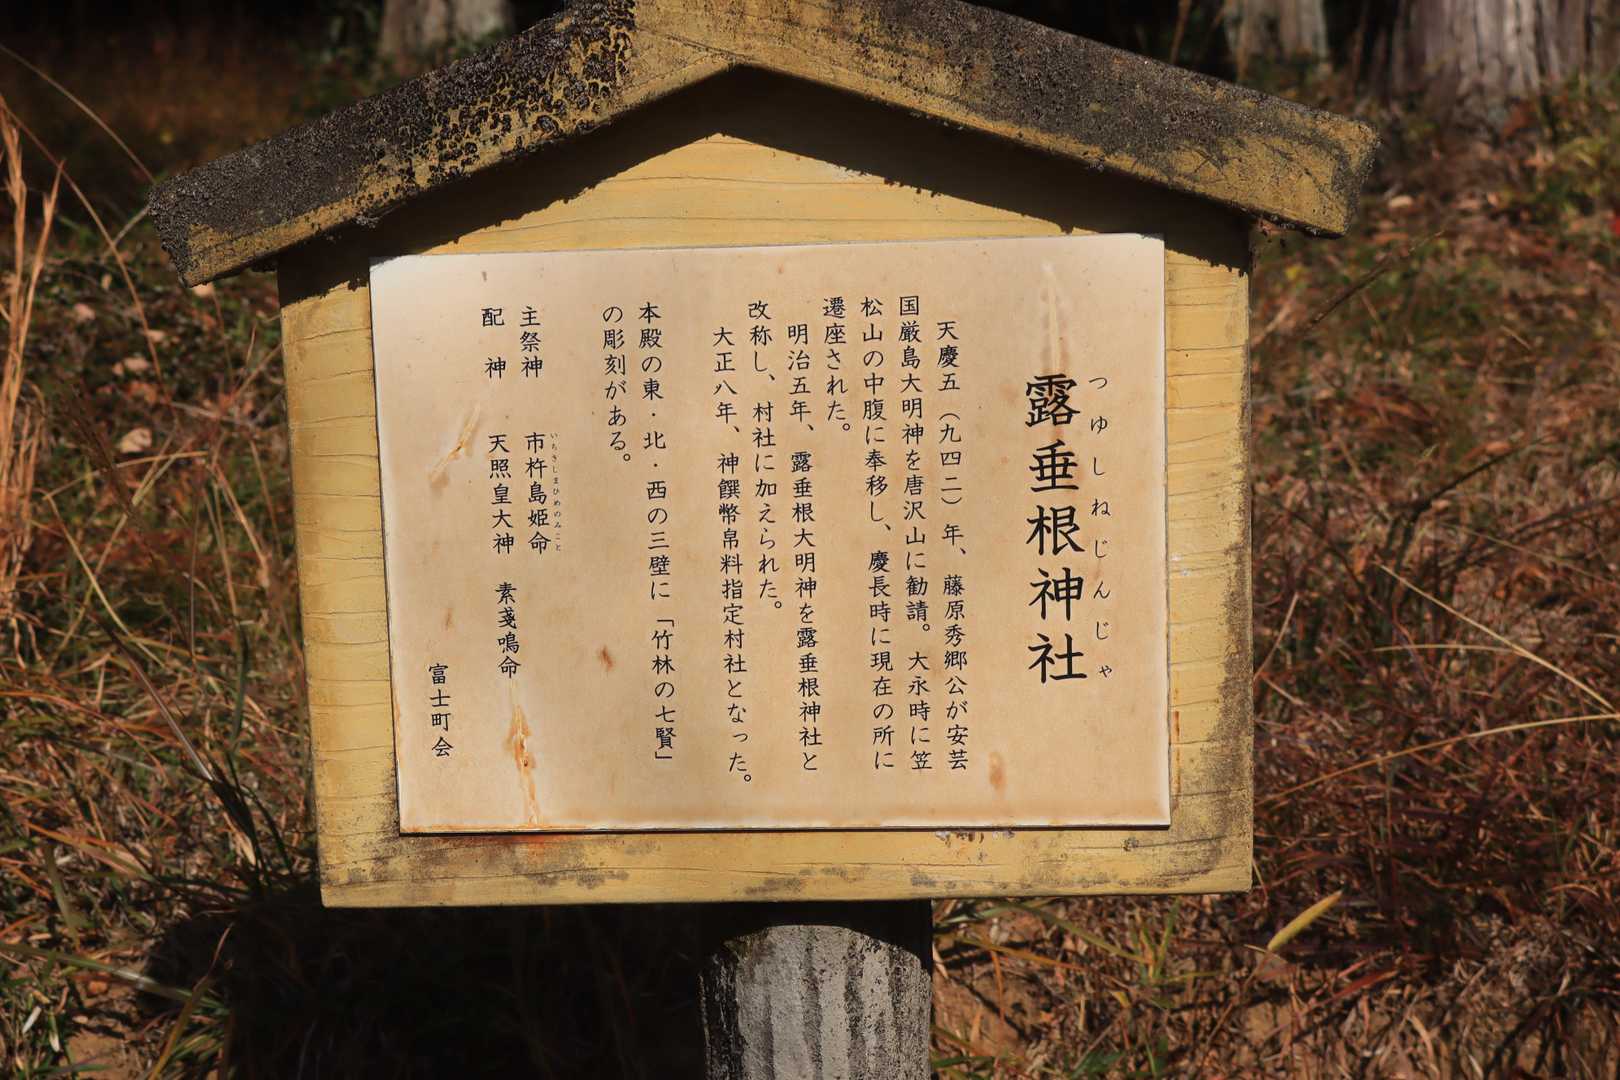 つゆしねじんじゃ
露垂根神社
天慶五(九四二)年、藤原秀郷公が安芸
国厳島大明神を唐沢山に勧請。大永時に笠
松山の中腹に奉移し、慶長時に現在の所に
遷座された。
明治五年、露垂根大明神を露垂根神社と
改称し、村社に加えられた。
大正八年、神饌幣帛料指定村社となった。
本殿の東・北・西の三壁に「竹林の七賢」
の彫刻がある。
いちきしまひめのみこと
主祭神 市杵島姫命
配神 天照皇大神 素戔嗚命
富士町会